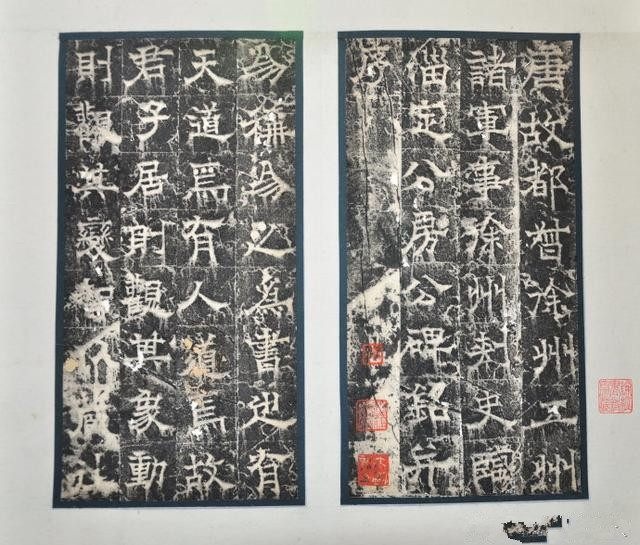 唐故都督徐州五州
諸軍事徐州刺史臨
淄定公房公碑銘并
序
易稱易之為書也有
天道焉有人道焉故
君子居則觀其象動
則觀其變